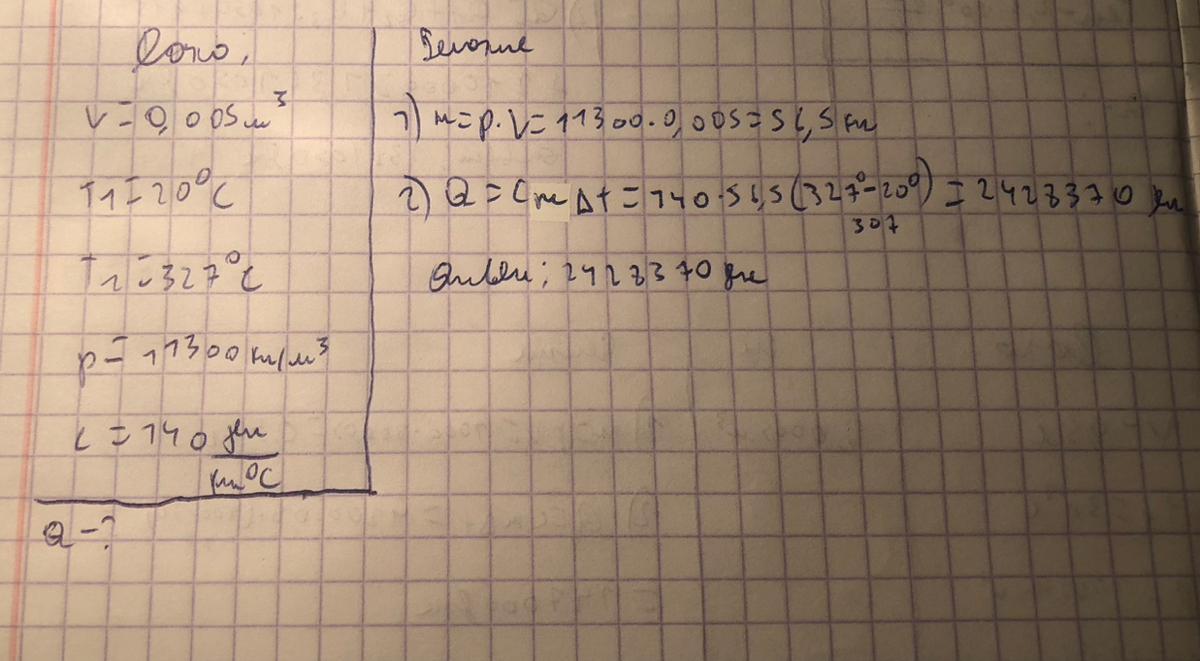 Дано,
V = 0,005 м³
T1 = 20°C
T2 = 327°C
p = 11300 кг/м³
c = 140 дж/кг°C
Q - ?
Решение
1) m = p · V = 11300 · 0,005 = 56,5 кг
2) Q = Cm Δt = 140 · 56,5 (327° - 20°) = 2428370 дж
307
Ответ: 2428370 дж